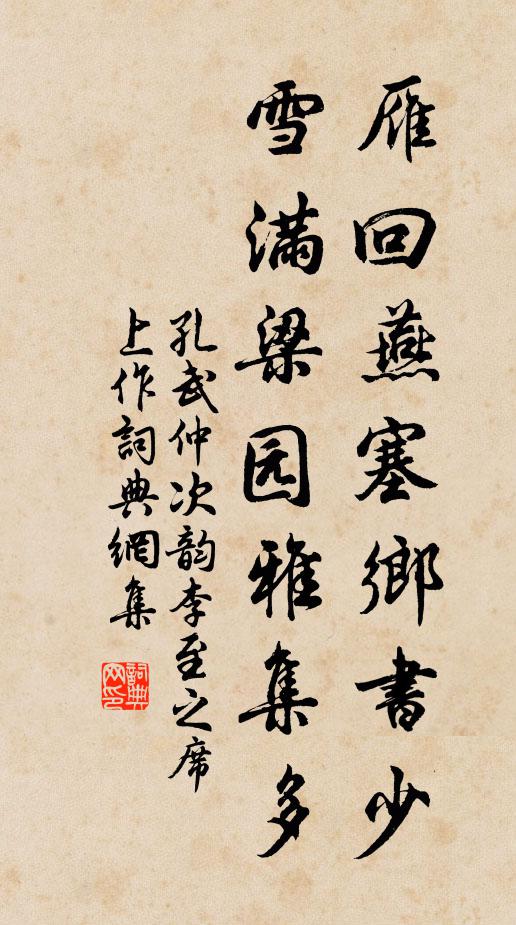 雁回燕塞鄉書少
雪滿梁园雅集多
孔武仲次韵李至之席
上作詞典網集
詞典
网印